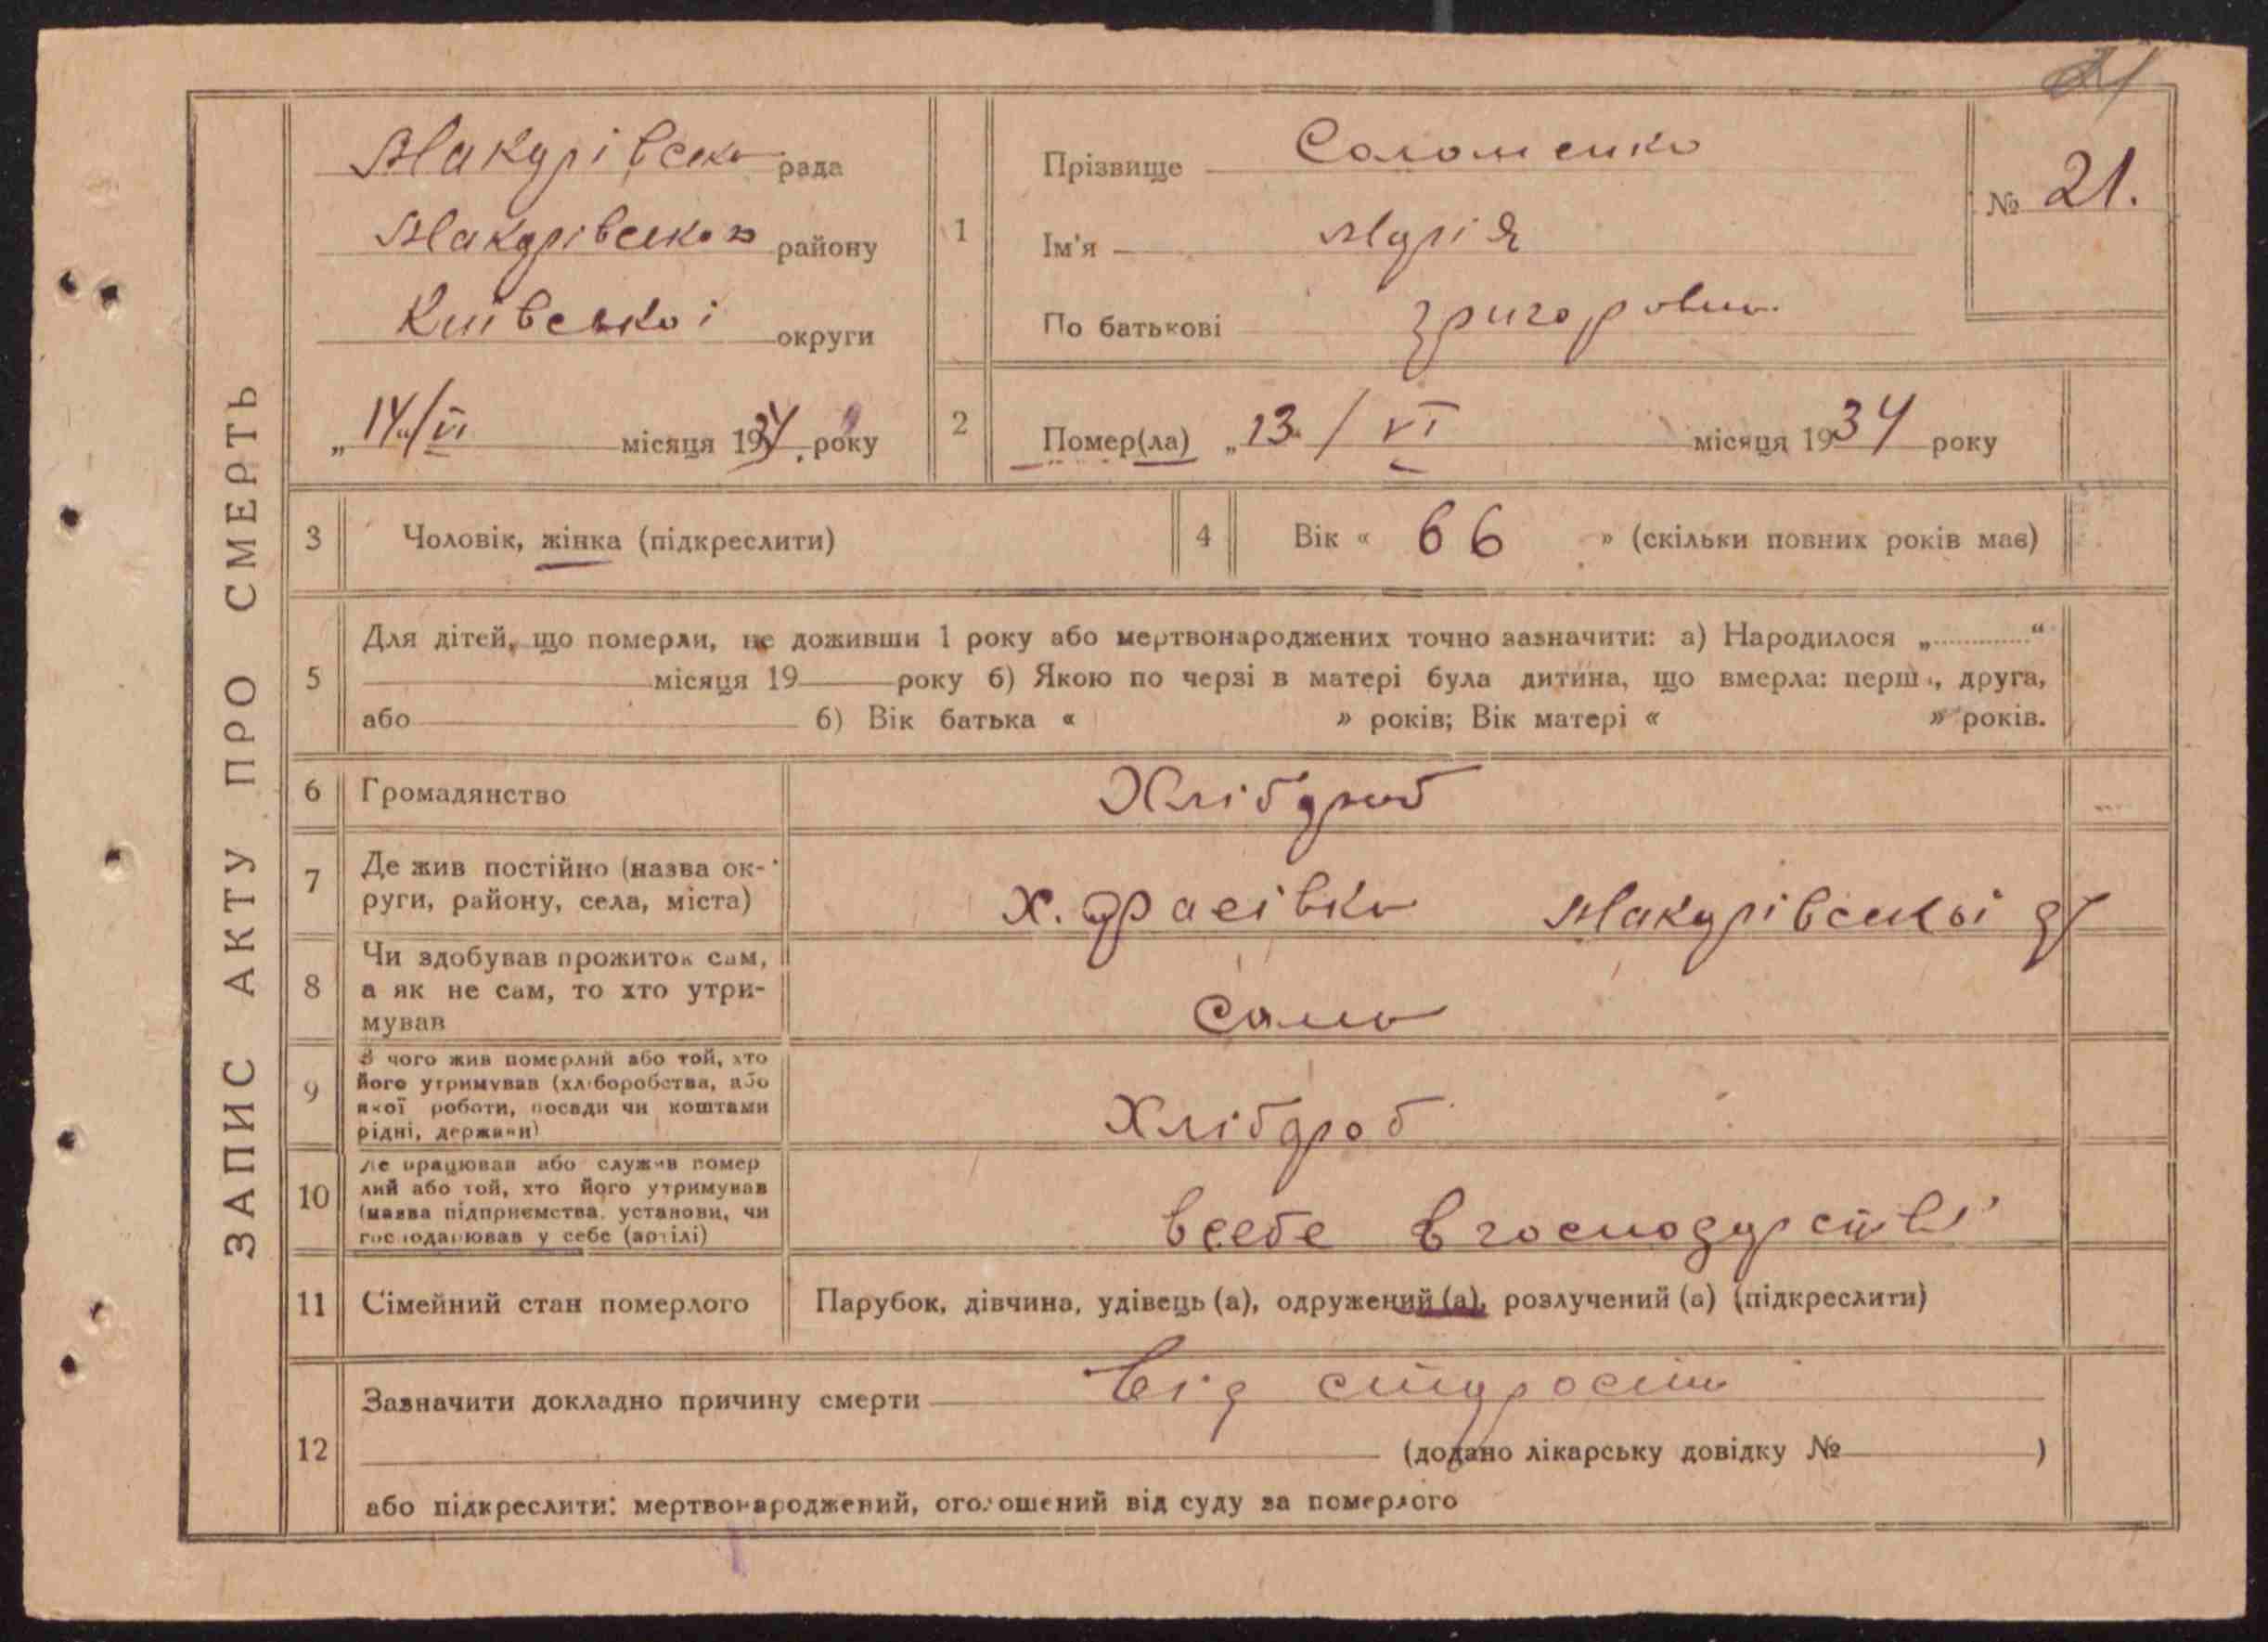 ЗАПИС АКТУ ПРО СМЕРТЬ
21
Макарівська рада
Макарівського району
Київської округи
„14“/VI місяця 1934 року
1
Прізвище Соломенко
Ім'я Марія
По батькові Григоровна
№ 21.
2
Помер(ла) „13“ / VI місяця 1934 року
3 Чоловік, жінка (підкреслити)
4 Вік « 66 » (скільки повних років має)
5
Для дітей, що померли, не доживши 1 року або мертвонароджених точно зазначити: а) Народилося „ “
місяця 19 року б) Якою по черзі в матері була дитина, що вмерла: перша, друга,
або б) Вік батька « » років; Вік матері « » років.
6 Громадянство Хлібороб
7 Де жив постійно (назва ок-
руги, району, села, міста)
х. Макарівської
8 Чи здобував прожиток сам,
а як не сам, то хто утри-
мував
сама
9 З чого жив померлий або той, хто
його утримував (хліборобства, або
якої роботи, посади чи коштами
рідні, держави)
Хлібороб
10 Де працював або служив помер
лий або той, хто його утримував
(назва підприємства, установи, чи
господарював у себе (артілі)
всебе в господарстві
11 Сімейний стан померлого Парубок, дівчина, удівець (а), одружений (а), розлучений (а) (підкреслити)
12
Зазначити докладно причину смерти від старости
(додано лікарську довідку № )
або підкреслити: мертвонароджений, оголошений від суду за померлого